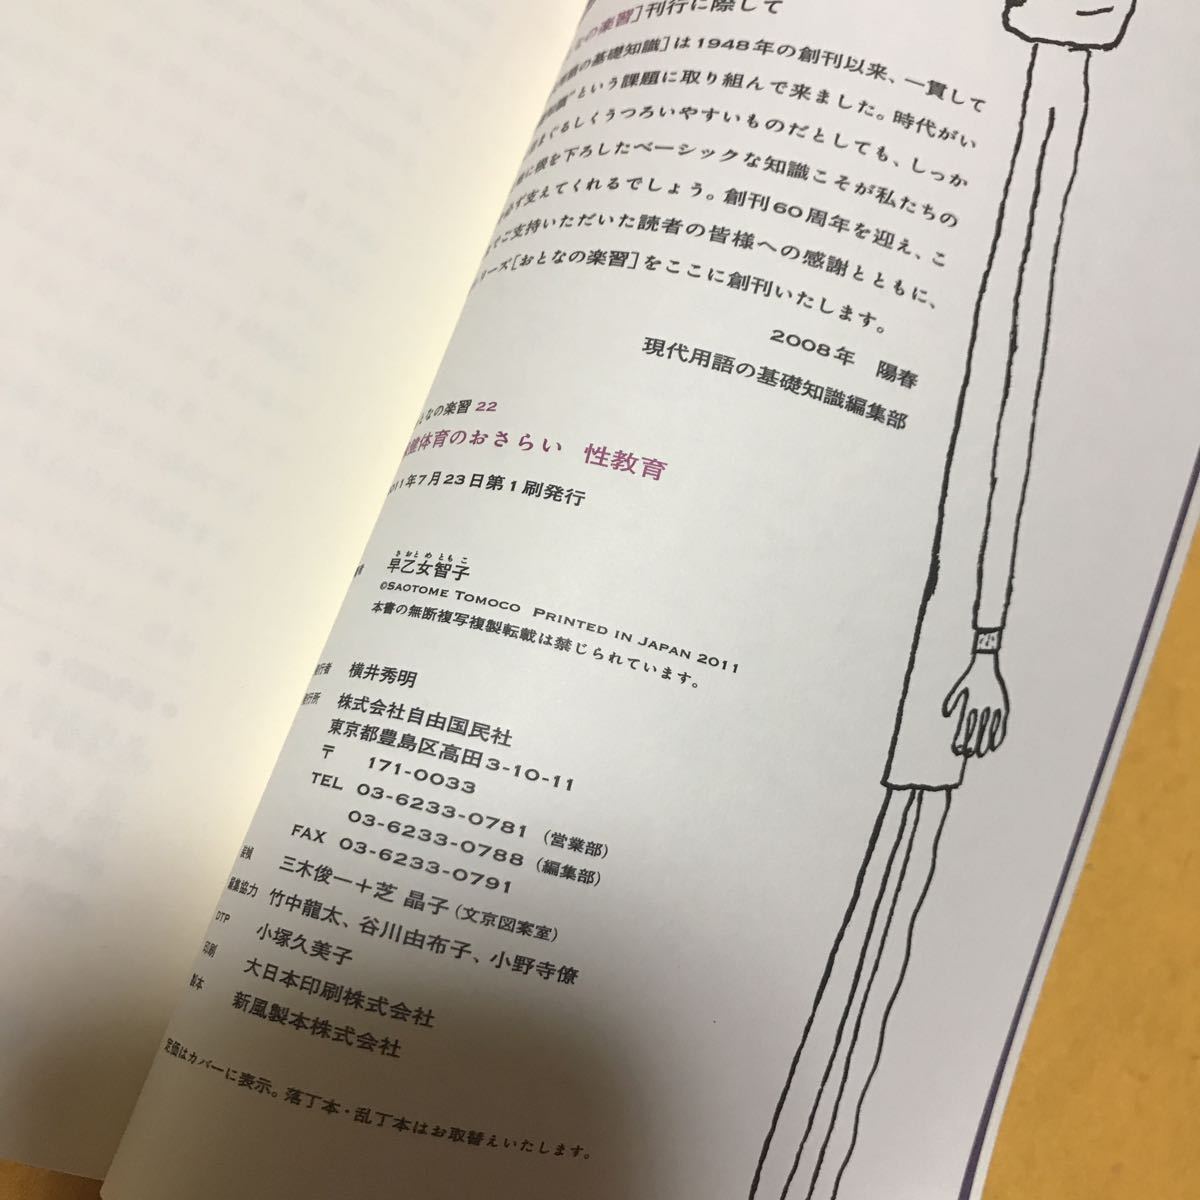 なの楽習]刊行に際して
の基礎知識]は1948年の創刊以来、一貫して
”という課題に取り組んで来ました。時代がい
まぐるしくうつろいやすいものだとしても、しっか
に根を下ろしたベーシックな知識こそが私たちの
必ず支えてくれるでしょう。創刊60周年を迎え、こ
でご支持いただいた読者の皆様への感謝とともに、
ーズ[おとなの楽習]をここに創刊いたします。
2008年 陽春
現代用語の基礎知識編集部
となの楽習 22
体育のおさらい 性教育
011年7月23日第1刷発行
さおとめ ともこ
早乙女智子
©Saotome Tomoco Printed in Japan 2011
本書の無断複写複製転載は禁じられています。
発行者 横井秀明
発行所 株式会社自由国民社
東京都豊島区高田3-10-11
〒 171-0033
TEL 03-6233-0781 (営業部)
03-6233-0788 (編集部)
FAX 03-6233-0791
装幀 三木俊一+芝 晶子(文京図案室)
編集協力 竹中龍太、谷川由布子、小野寺僚
DTP 小塚久美子
印刷 大日本印刷株式会社
製本 新風製本株式会社
定価はカバーに表示。落丁本・乱丁本はお取替えいたします。